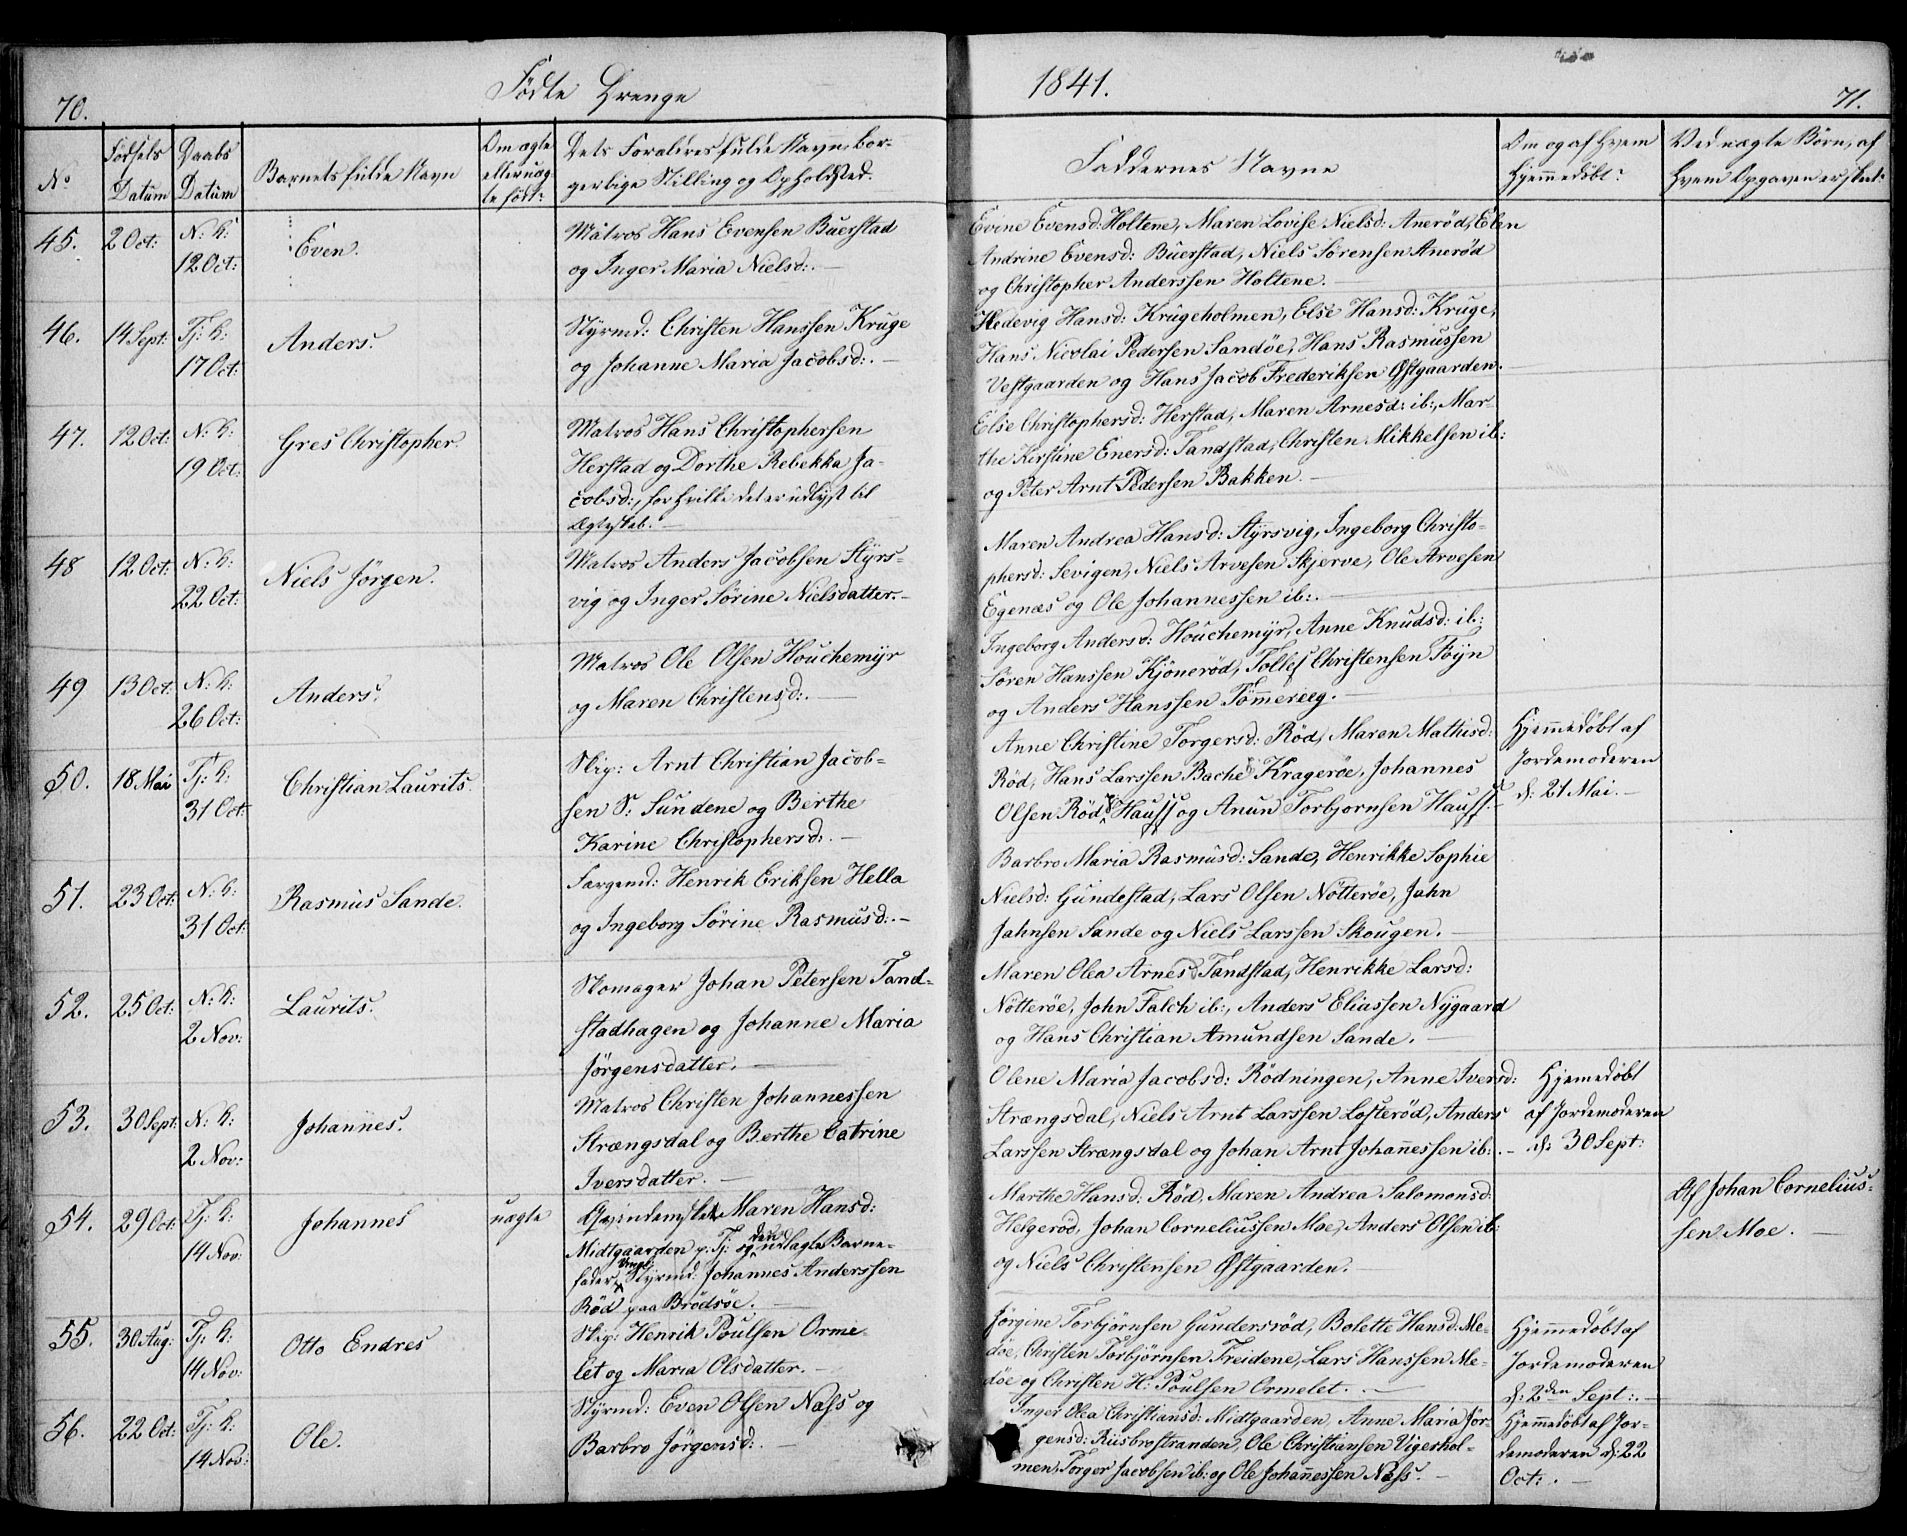 70.
Fødte Drenge
1841.
71.
No
Fødsels Datum
Daabs Datum
Barnets fulde Navn
Om ægte eller uægte født:
Dets Forældres fulde Navne, borgerlige Stilling og Opholdsted.
Faddernes Navne
Om og af Hvem Hjemmedøbt:
Ved uægte Børn, af Hvem Opgaven er skeet:
45.
2 Oct:
N: K:
12 Oct:
Even.
Matros Hans Evensen Buerstad
og Inger Maria Nielsd:. —
Evine Evensd: Holtene, Maren Lovise Nielsd: Anerød, Elen
Andrine Evensd: Buerstad, Niels Sørensen Anerød
og Christopher Anderssen Holtene. —
46.
14 Sept:
Tj: K:
17 Oct:
Anders.
Styrmd: Christen Hanssen Kruge
og Johanne Maria Jacobsd:. —
Hedevig Hansd: Krugeholmen, Else Hansd: Kruge,
Hans Nicolai Pedersen Sandöe, Hans Rasmussen
Vestgaarden og Hans Jacob Frederiksen Østgaarden.
47.
12 Oct:
N: K:
19 Oct:
Gres Christopher.
Matros Hans Christophersen
Herstad og Dorthe Rebekka Ja-
cobsd:, for hvilke det er udlyst til
Ægteskab. —
Else Christophersd: Herstad, Maren Arnesd: ib:, Mar-
the Kirstine Enersd: Tandstad, Christen Mikkelsen ib:
og Peter Arnt Pedersen Bakken. —
48
12 Oct:
N: K:
22 Oct:
Niels Jörgen.
Matros Anders Jacobsen Styrs-
vig og Inger Sørine Nielsdatter. —
Maren Andrea Hansd: Styrsvig, Ingeborg Christo-
phersd: Sevigen, Niels Arvesen Skjerve, Ole Arvesen
Egenæs og Ole Johannessen ib:. —
49
13 Oct:
N: K:
26 Oct:
Anders.
Matros Ole Olsen Houchemyr
og Maren Christensd:. —
Ingeborg Andersd: Houchemyr, Anne Knudsd: ib:
Søren Hanssen Kjönerød, Tollef Christensen Föyn
og Anders Hanssen Tömmereeg. —
50.
18 Mai
Tj: K:
31 Oct:
Christian Laurits.
Skip: Arnt Christian Jacob-
sen S: Sundene og Berthe
Karine Christophersd:. —
Anne Christine Torgersd: Röd, Maren Mathisd:
Röd, Hans Larssen Bache Kragerøe, Johannes
Olsen Röd Hauss og Anun Torbjornsen Hauss. —
Hjemmedøbt af
Jordemoderen
d: 21 Mai. —
51.
23 Oct:
N: K:
31 Oct:
Rasmus Sande.
Færgemd: Henrik Eriksen Hella
og Ingeborg Sørine Rasmusd:. —
Barbro Maria Rasmusd: Sande, Henrikke Sophie
Nielsd: Gundestad, Lars Olsen Nötteröe, Jahn
Jahnsen Sande og Niels Larssen Skougen. —
52.
25 Oct:
N: K:
2 Nov:
Laurits.
Skomager Johan Petersen Tand-
stadhagen og Johanne Maria
Jörgensdatter. —
Maren Olea Arnesd Tandstad, Henrikke Larsd:
Nötteröe, John Falch ib:, Anders Eliassen Nygaard
og Hans Christian Amundsen Sande. —
53.
30 Sept:
N: K:
2 Nov:
Johannes.
Matros Christen Johannessen
Strængsdal og Berthe Catrine
Iversdatter. —
Olene Maria Jacobsd: Rödningen, Anne Iversd:
Strængsdal, Niels Arnt Larssen Lofteröd, Anders
Larssen Strængsdal og Johan Arnt Johannessen ib:. —
Hjemedöbt
af Jordemoderen
d: 30 Sept:
54.
29 Oct:
Tj: K:
14 Nov:
Johannes
uægte
Qvindemsket Maren Hansd:
Midtgaarden p. Tj: og den udlagte Barne-
fader Ungk: Styrmd: Johannes Anderssen
Röd paa Brödsöe. —
Marthe Hansd: Röd, Maren Andrea Salomonsd:
Helgeröd, Johan Corneliussen Moe, Anders Olsen ib:
og Niels Christensen Østgaarden. —
Af Johan Cornelius-
sen Moe. —
55.
30 Aug:
Tj: K:
14 Nov:
Otto Endres
Skip: Henrik Poulsen Orme-
let og Maria Olsdatter. —
Jörgine Torbjörnsen Gundersröd, Bolette Hansd: Me-
döe, Christen Torbjörnsen Freidene, Lars Hanssen Me-
döe og Christen H: Poulsen Ormelet. —
Hjemmedøbt af
Jordemoderen
d: 2den Sept:. —
56.
22 Oct:
Tj: K:
14 Nov:
Ole.
Styrmd: Even Olsen Næss og
Barbro Jörgensd:. —
Inger Olea Christiansd: Midtgaarden, Anne Maria Jör-
gensd: Riisbrostranden, Ole Christiansen Vigeshol-
men, Torger Jacobsen ib: og Ole Johannessen Næss. —
Hjemmedøbt af Jor-
demoderen d: 22
Oct:. —